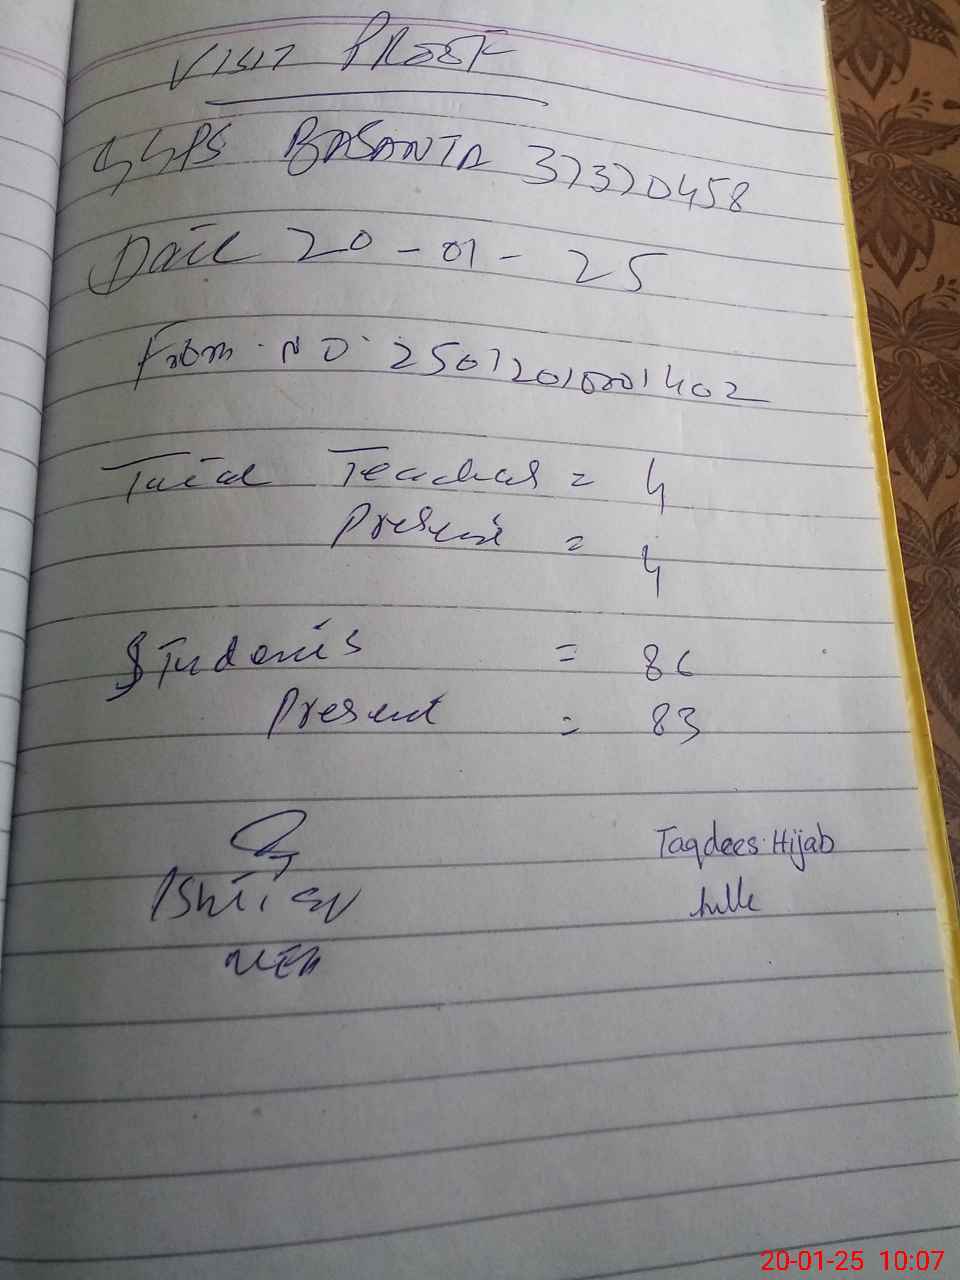 VISIT PROOF
GGPS BASANTA 37370458
Date 20-01-25
From NO. 25012010001402
Total Teachers = 4
Present = 4
Students = 86
Present = 83
Taqdees Hijab
Ishtiaq
MEA
20-01-25 10:07